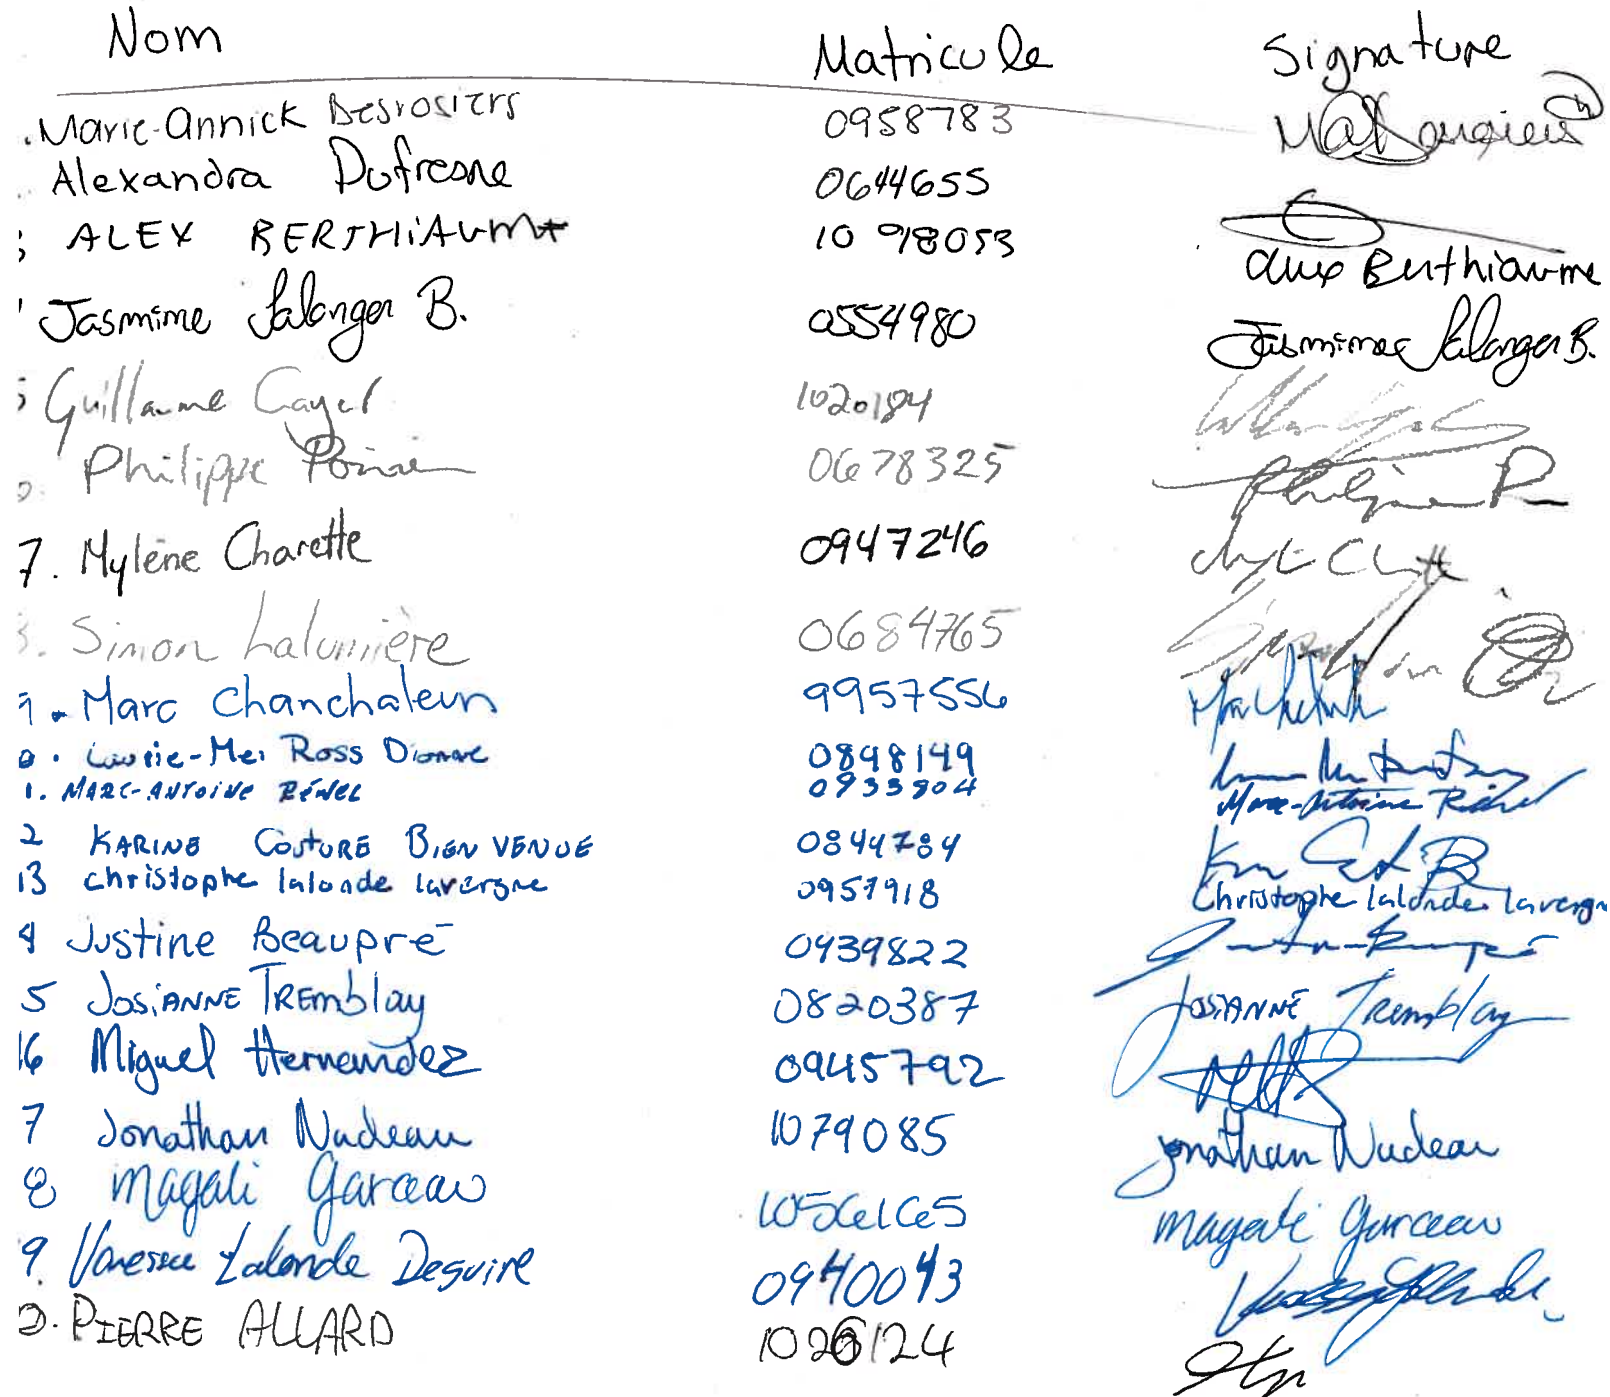 Nom Matricule Signature
Marie-Annick Desrosiers 0958783
Alexandra Dufresne 0644655
ALEX BERTHIAUME 10 918053 Alex Berthiaume
Jasmine Salonger B. 0554980 Jasmine Salonger B.
Guillaume Gayel 1020184
Philippe Poirier 0678325 Philippe P
7. Mylène Charette 0947246
Simon Lalumière 0684765
Marc Chanchaleun 9957556
Laurie-Mei Ross Dionne 0848149
1. MARC-ANTOINE 0933804 Marc-Antoine
2 KARINE COUTURE BIENVENUE 0844784
13 Christophe lalonde lavergne 0957918 Christophe lalonde lavergn
4 Justine Beaupré 0939822
5 JOSIANNE TREmblay 0820387 JOSIANNE Tremblay
16 Miguel Hernandez 0945792
7 Jonathan Nadeau 1079085 Jonathan Nadeau
8 magali garceau 1056165 magali garceau
9. Vanessa Lalonde Deguire 0940043
PIERRE ALLARD 1026124